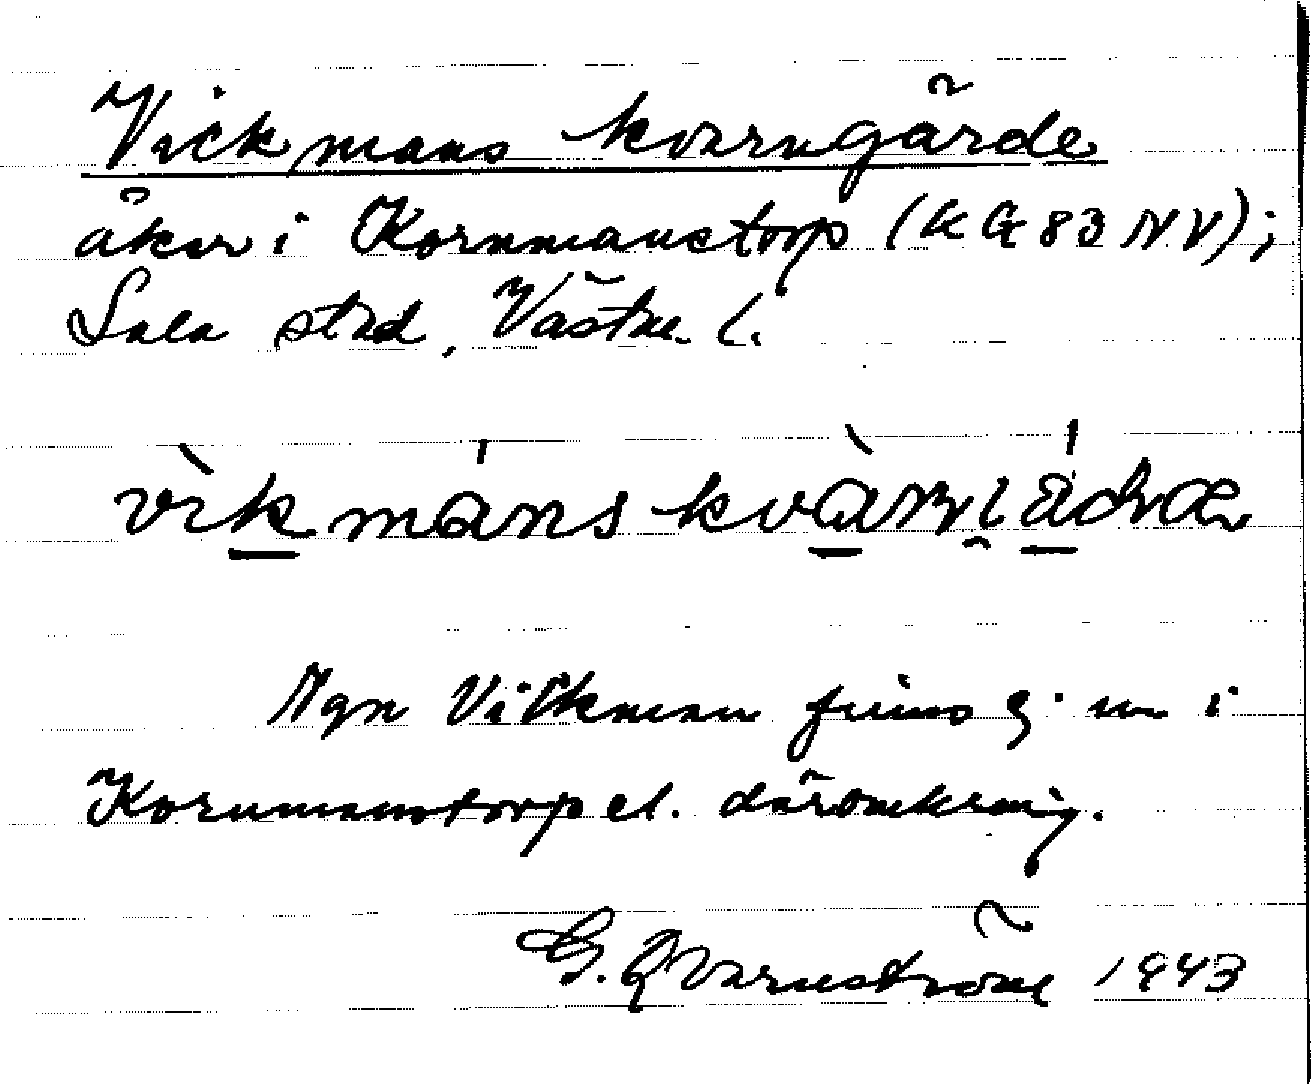 Vickmans kvarngärde
åker i Kornmanstorp (KG 83 NV);
Sala stad, Västm. l.
vìk máns kvàrnjáda
Ngn Vikman finns ej nu i
Kornmanstorp el. däromkring.
G. Qvarnström 1943